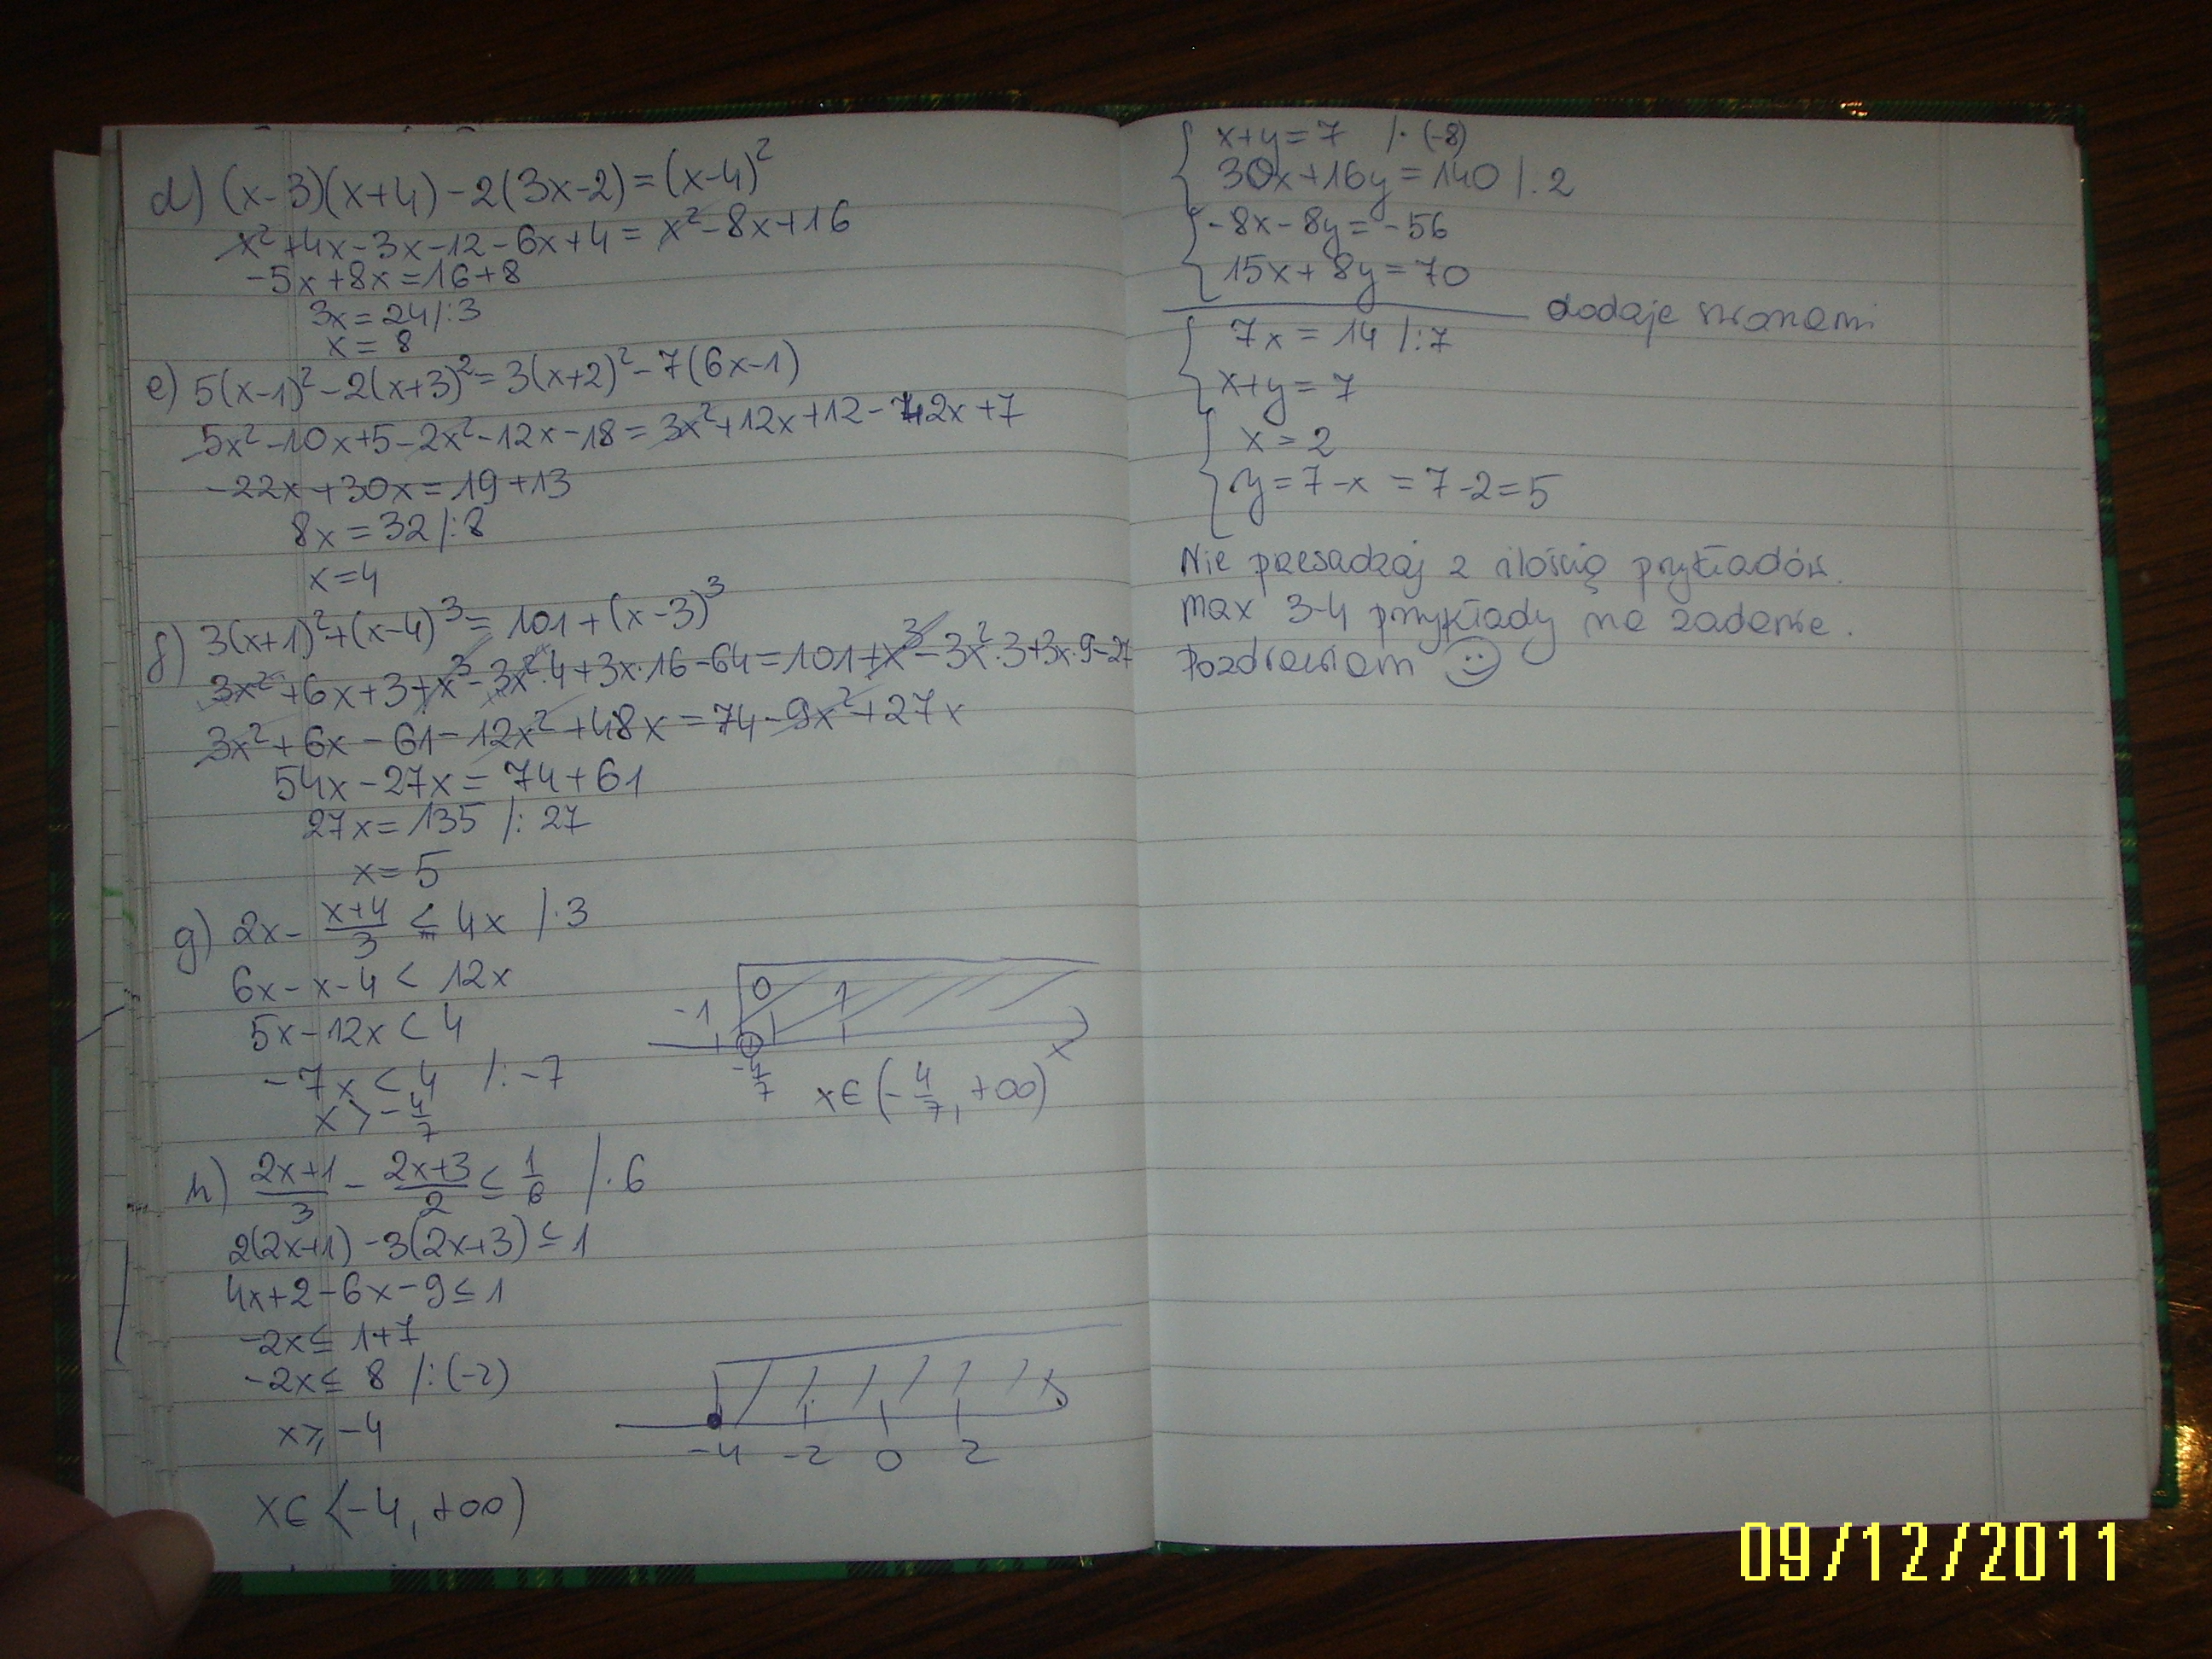 d) (x-3)(x+4)-2(3x-2)=(x-4)²
x²+4x-3x-12-6x+4=x²-8x+16
-5x+8x=16+8
3x=24/:3
x=8
e) 5(x-1)²-2(x+3)²=3(x+2)²-7(6x-1)
5x²-10x+5-2x²-12x-18=3x²+12x+12-42x+7
-22x+30x=19+13
8x=32/:8
x=4
f) 3(x+1)²+(x-4)³=101+(x-3)³
3x²+6x+3+x³-3x²·4+3x·16-64=101+x³-3x²·3+3x·9-27
3x²+6x-61-12x²+48x=74-9x²+27x
54x-27x=74+61
27x=135 /:27
x=5
g) 2x-\frac{x+4}{3} ≤ 4x /·3
6x-x-4 < 12x
5x-12x < 4
-7x < 4 /:-7
x > -\frac{4}{7}
-1 0 1
-\frac{4}{7} x
x∈(-\frac{4}{7}, +∞)
h) \frac{2x+1}{3} - \frac{2x+3}{2} ≤ \frac{1}{6} /·6
2(2x+1)-3(2x+3) ≤ 1
4x+2-6x-9 ≤ 1
-2x ≤ 1+7
-2x ≤ 8 /:(-2)
x ⩾ -4
x
-4 -2 0 2
x∈⟨-4, +∞)
{ x+y=7 /·(-8)
30x+16y=140 /:2
{ -8x-8y=-56
15x+8y=70
dodaje stronami
{ 7x=14 /:7
x+y=7
{ x=2
y=7-x=7-2=5
Nie przesadzaj z ilością przykładów.
max 3-4 przykłady na zadanie.
Pozdrawiam ☺
09/12/2011